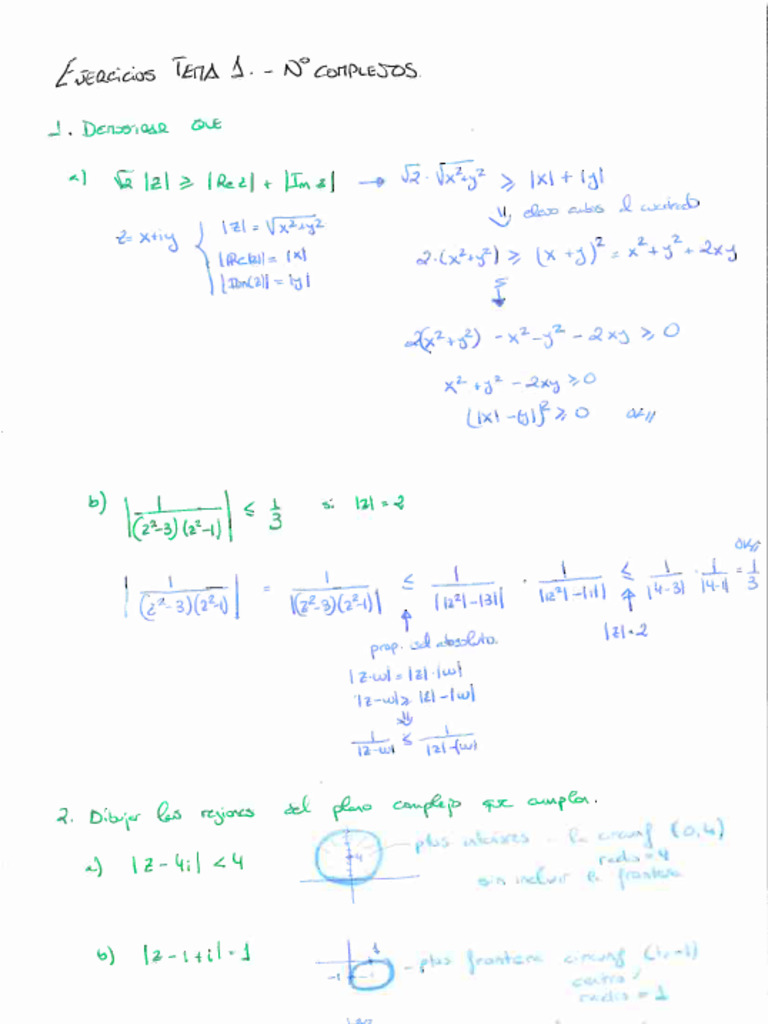 EJERCICIOS TEMA 1. - Nº COMPLEJOS.
1. DEMOSTRAR QUE
a) √2 |z| ≥ |Re z| + |Im z| → √2 · √x²+y² ≥ |x| + |y|
⇓ elevo ambos al cuadrado
z = x+iy { |z| = √x²+y²
|Re(z)| = |x|
|Im(z)| = |y|
2·(x²+y²) ≥ (x+y)² = x²+y²+2xy
2(x²+y²) - x² - y² - 2xy ≥ 0
x² + y² - 2xy ≥ 0
(|x| - |y|)² ≥ 0 OK//
b) |1/((z²-3)(z²-1))| ≤ 1/3 si |z| = 2
|1/((z²-3)(z²-1))| = 1/|(z²-3)(z²-1)| ≤ 1/||z²|-|3|| · 1/||z²|-|1|| ≤ 1/|4-3| · 1/|4-1| = 1/3 OK//
prop. val absoluto. |z|=2
|z·w| = |z|·|w|
|z-w| ≥ |z| - |w|
⇓
1/|z-w| ≤ 1/|z|-|w|
2. Dibujar las regiones del plano complejo que cumplan.
a) |z - 4i| < 4
4
ptos interiores - la circunf (0,4)
radio = 4
sin incluir la frontera
b) |z - 1 + i| = 1
1
-1
- ptos frontera circunf (1,-1)
centro
radio = 1